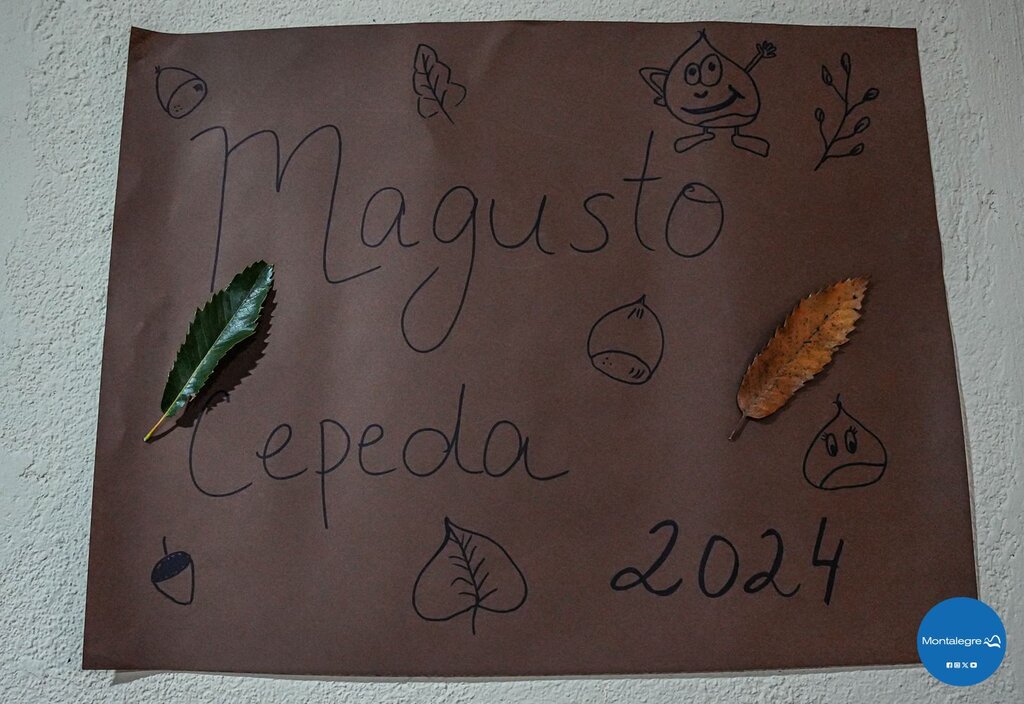 Magusto
Cepeda
2024
Montalegre